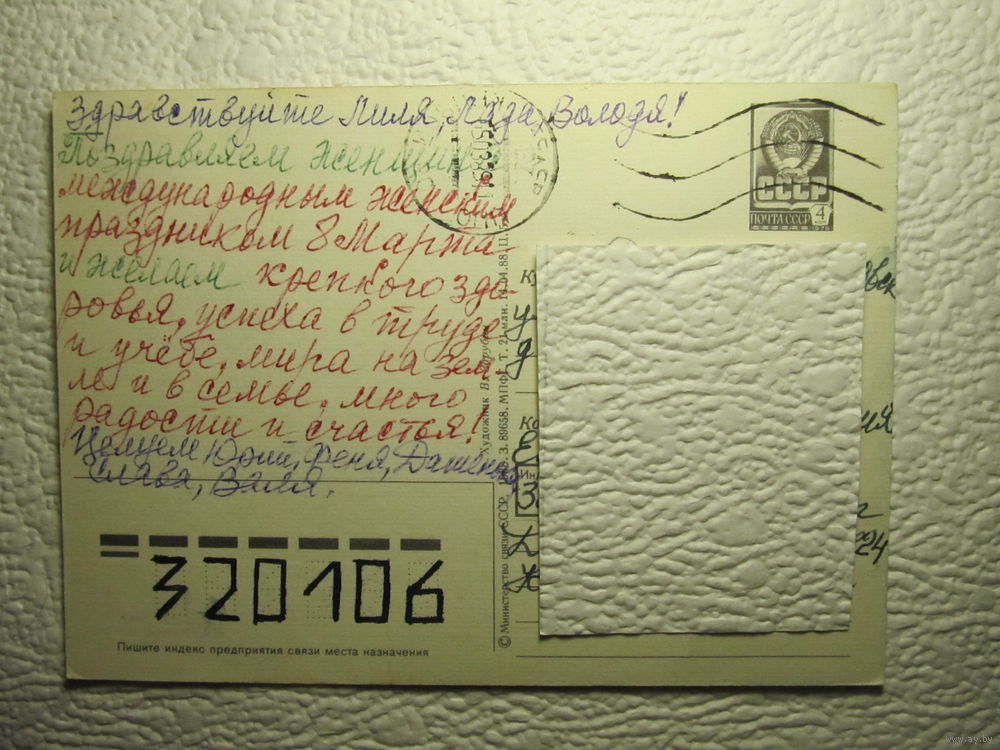 Здравствуйте Лиля, Лада, Володя!
Поздравляем женщин с
международным женским
праздником 8 Марта
и желаем крепкого здо-
ровья, успеха в труде
и учёбе, мира на Зем-
ле и в семье, много
радости и счастья!
Целуем Юрий, Феня,
Слава, Валя.
СССР
ПОЧТА СССР 4
320106
Пишите индекс предприятия связи места назначения
© Министерство связи СССР,
З. 89658. МПФГ. Т. 21 млн.
04.88
Художник В.
www.ay.by